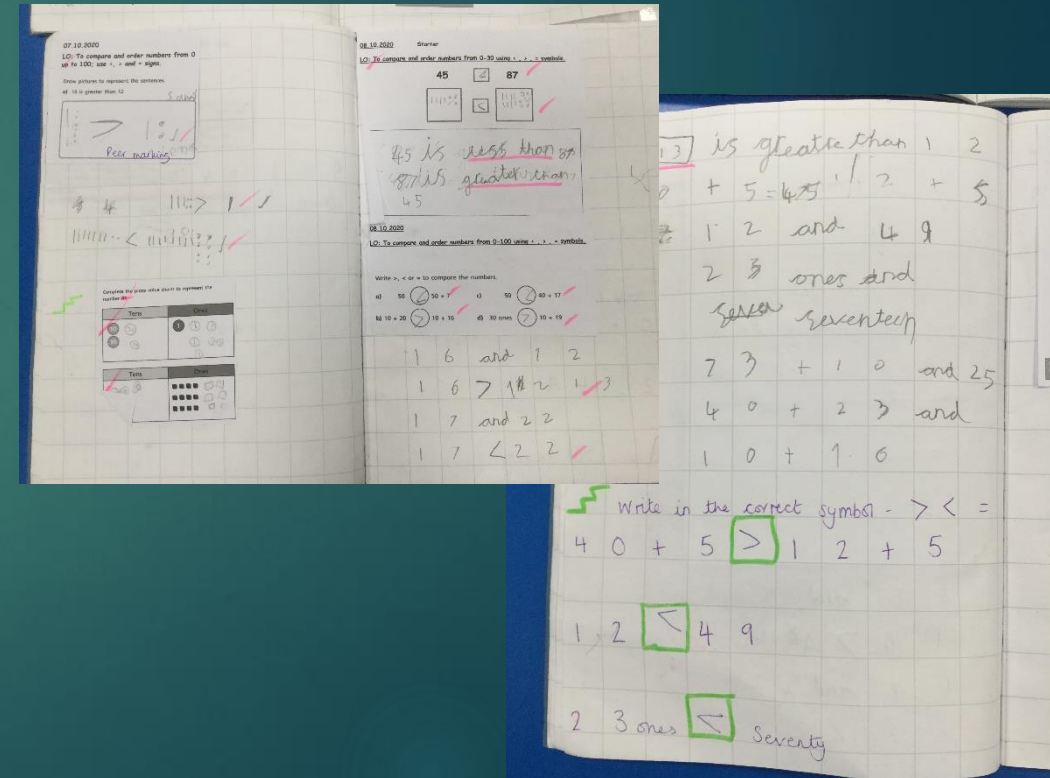 07.10.2020
LO: To compare and order numbers from 0
up to 100; use <, > and = signs.
Draw pictures to represent the sentences.
>
Peer marking
>
<
Complete the place value charts to represent the
Tens Ones
Tens Ones
08.10.2020 Starter
LO: To compare and order numbers from 0-30 using < , > , = symbols.
45 < 87
<
45 is less than 87
87 is greater than
45
08.10.2020
LO: To compare and order numbers from 0-100 using < , > , = symbols.
Write >, < or = to compare the numbers.
a) 50 < 50 + 7 c) 50 < 40 + 17
b) 10 + 20 > 10 + 10 d) 30 ones > 10 + 19
1 6 and 1 2
1 6 > 1 2 1 3
1 7 and 2 2
1 7 < 2 2
13 is greatre than 1 2
+ 5 = 45 12 + 5
1 2 and 4 9
2 3 ones and
seventeen
7 3 + 1 0 and 25
4 0 + 2 3 and
1 0 + 1 0
Write in the correct symbol - > < =
4 0 + 5 > 1 2 + 5
1 2 < 4 9
2 3 ones < Seventy